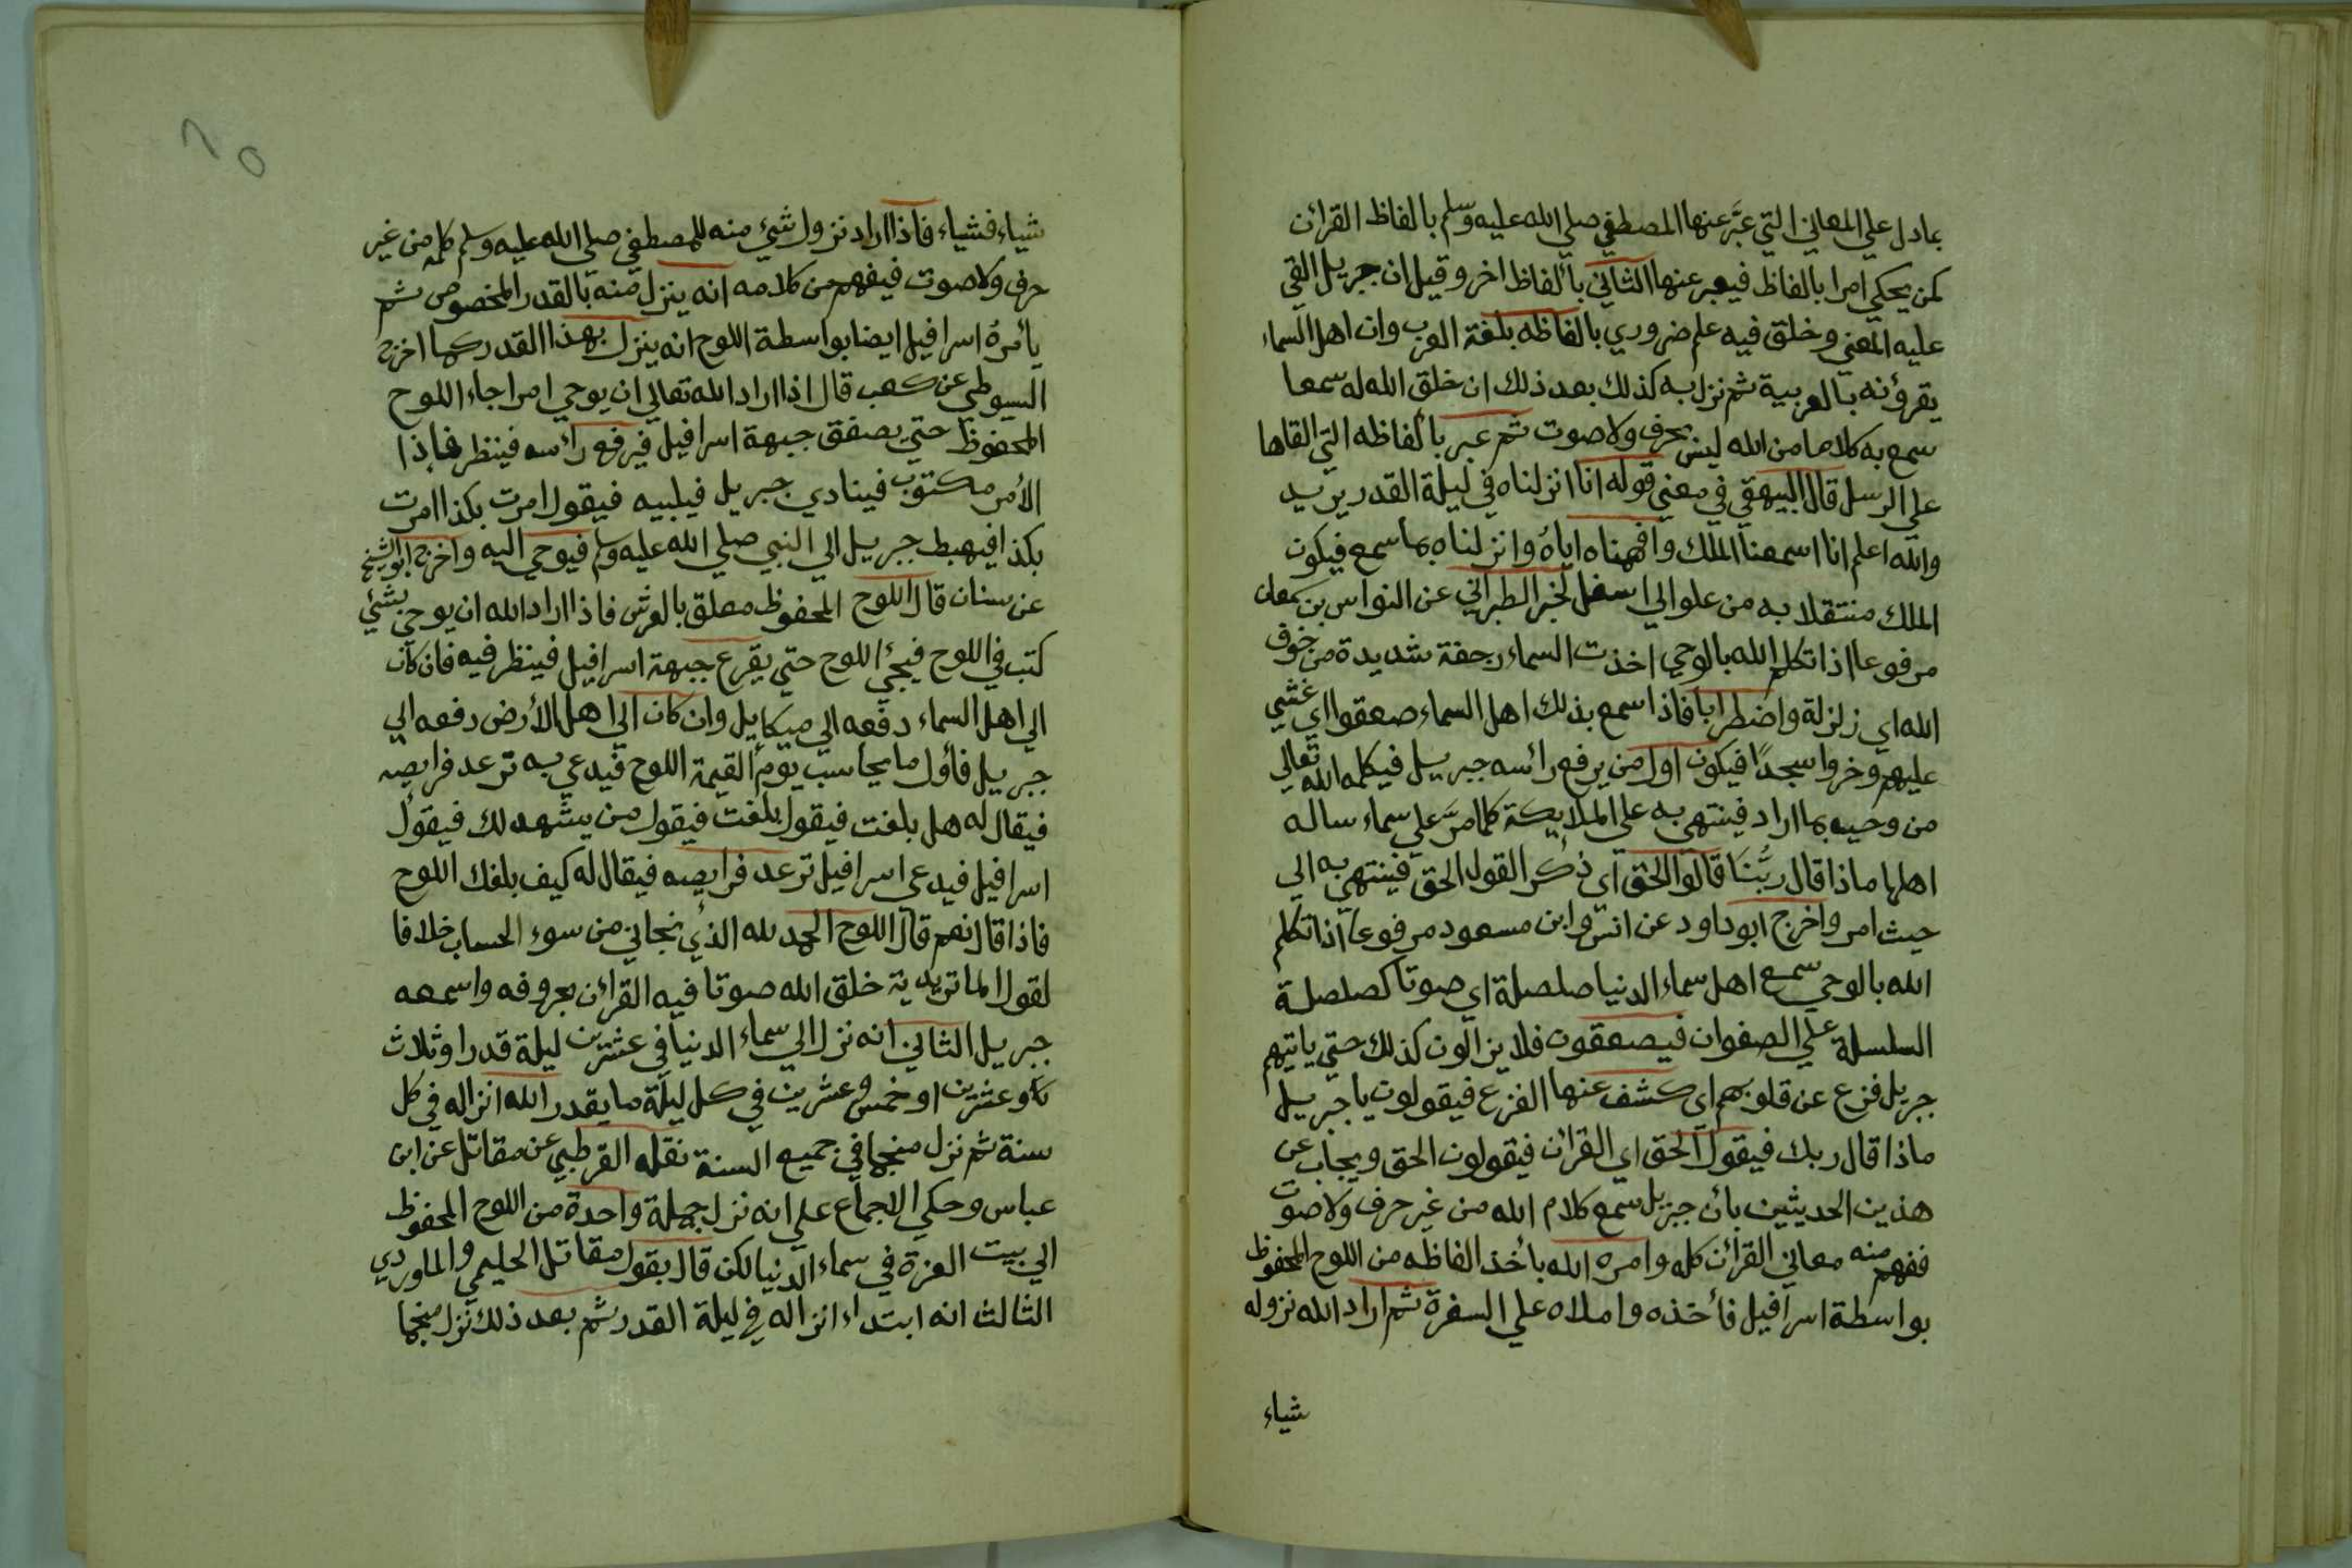 بما دل علي المعاني التي عبَّر عنها المصطفي صلي الله عليه وسلم بالفاظ القرائن
كمن يحكي امرا بالفاظ فيعبر عنها الثاني بألفاظ اخر وقيل ان جبريل القي
عليه المعني وخلق فيه علم ضروري بالفاظه بلغة العرب وان اهل السماء
يقرؤنه بالعربية ثم نزل به كذلك بعد ذلك ان خلق الله له سمعا
سمع به كلاما من الله ليس بحرف ولا صوت ثم عبر بألفاظه التي القاها
علي الرسل قال البيهقي في معني قوله انا انزلناه في ليلة القدر يريد
والله اعلم انا اسمعنا الملك وافهمناه اياهُ وانزلناه بما سمع فيكون
الملك منتقلا به من علو الي اسفل لخبر الطبراني عن النواس بن سمعان
مرفوعا اذا تكلم الله بالوحي اخذت السماء رجفة شديدة من خوف
الله اي زلزلة واضطرابا فاذا سمع بذلك اهل السماء صعقوا اي غشي
عليهم وخروا سجدًا فيكون اول من يرفع رائسه جبريل فيكلمه الله تعالي
من وحيه بما اراد فينتهي به علي الملايكة كلما مرَّ علي سماء ساله
اهلها ماذا قال ربُّنَا قالوا الحق اي ذكر القول الحق فينتهي به الي
حيث امر واخرج ابو داود عن انس وابن مسعود مرفوعا اذا تكلم
الله بالوحي سمع اهل سماء الدنيا صلصلة اي صوتا كصلصلة
السلسلة علي الصفوان فيصعقون فلا يزالون كذلك حتي ياتيهم
جبريل فزع عن قلوبهم اي كشف عنها الفزع فيقولون يا جبريل
ماذا قال ربك فيقول الحق اي القرائن فيقولون الحق ويجاب عن
هذين الحديثين بأن جبريل سمع كلام الله من غير حرف ولا صوت
ففهم منه معاني القرائن كله وامره الله بأخذ الفاظه من اللوح المحفوظ
بواسطة اسرافيل فأخذه واملاه علي السفرة ثم اراد الله نزوله
شياء
شياء فشياء فاذا اراد نزول شيئ منه للمصطفي صلي الله عليه وسلم كلمه من غير
حرف ولا صوت فيفهم من كلامه انه ينزل منه بالقدر المخصوص ثم
يأمرهُ اسرافيل ايضا بواسطة اللوح انه ينزل بهذا القدر كما اخرج
السيوطي عن كعب قال اذا اراد الله تعالي ان يوحي امرا جاء اللوح
المحفوظ حتي يصفق جبهة اسرافيل فيرفع رائسه فينظر فاذا
الأمر مكتوب فينادي جبريل فيلبيه فيقول امرت بكذا امرت
بكذا فيهبط جبريل الي النبي صلي الله عليه وسلم فيوحي اليه واخرج ابو الشيخ
عن سنان قال اللوح المحفوظ معلق بالعرش فاذا اراد الله ان يوحي بشئي
كتب في اللوح فيجيئ اللوح حتي يقرع جبهة اسرافيل فينظر فيه فان كان
الي اهل السماء دفعه الي ميكايل وان كان الي اهل الأرض دفعه الي
جبريل فأول ما يحاسب يوم القيمة اللوح فيدعي به ترعد فرايصه
فيقال له هل بلغت فيقول بلغت فيقول من يشهد لك فيقول
اسرافيل فيدعي اسرافيل ترعد فرايصه فيقال له كيف بلغك اللوح
فاذا قال نعم قال اللوح الحمد لله الذي نجاني من سوء الحساب خلافا
لقول الماتريدية خلق الله صوتا فيه القرائن بحروفه واسمعه
جبريل الثاني انه نزل الي سماء الدنيا في عشرين ليلة قدر او ثلاث
وعشرين او خمس وعشرين في كل ليلة ما يقدر الله انزاله في كل
سنة ثم نزل منجما في جميع السنة نقله القرطبي عن مقاتل عن ابن
عباس وحكي الاجماع علي انه نزل جملة واحدة من اللوح المحفوظ
الي بيت العزة في سماء الدنيا لكن قال بقول مقاتل الحليمي والماوردي
الثالث انه ابتداء انزاله في ليلة القدر ثم بعد ذلك نزل منجما